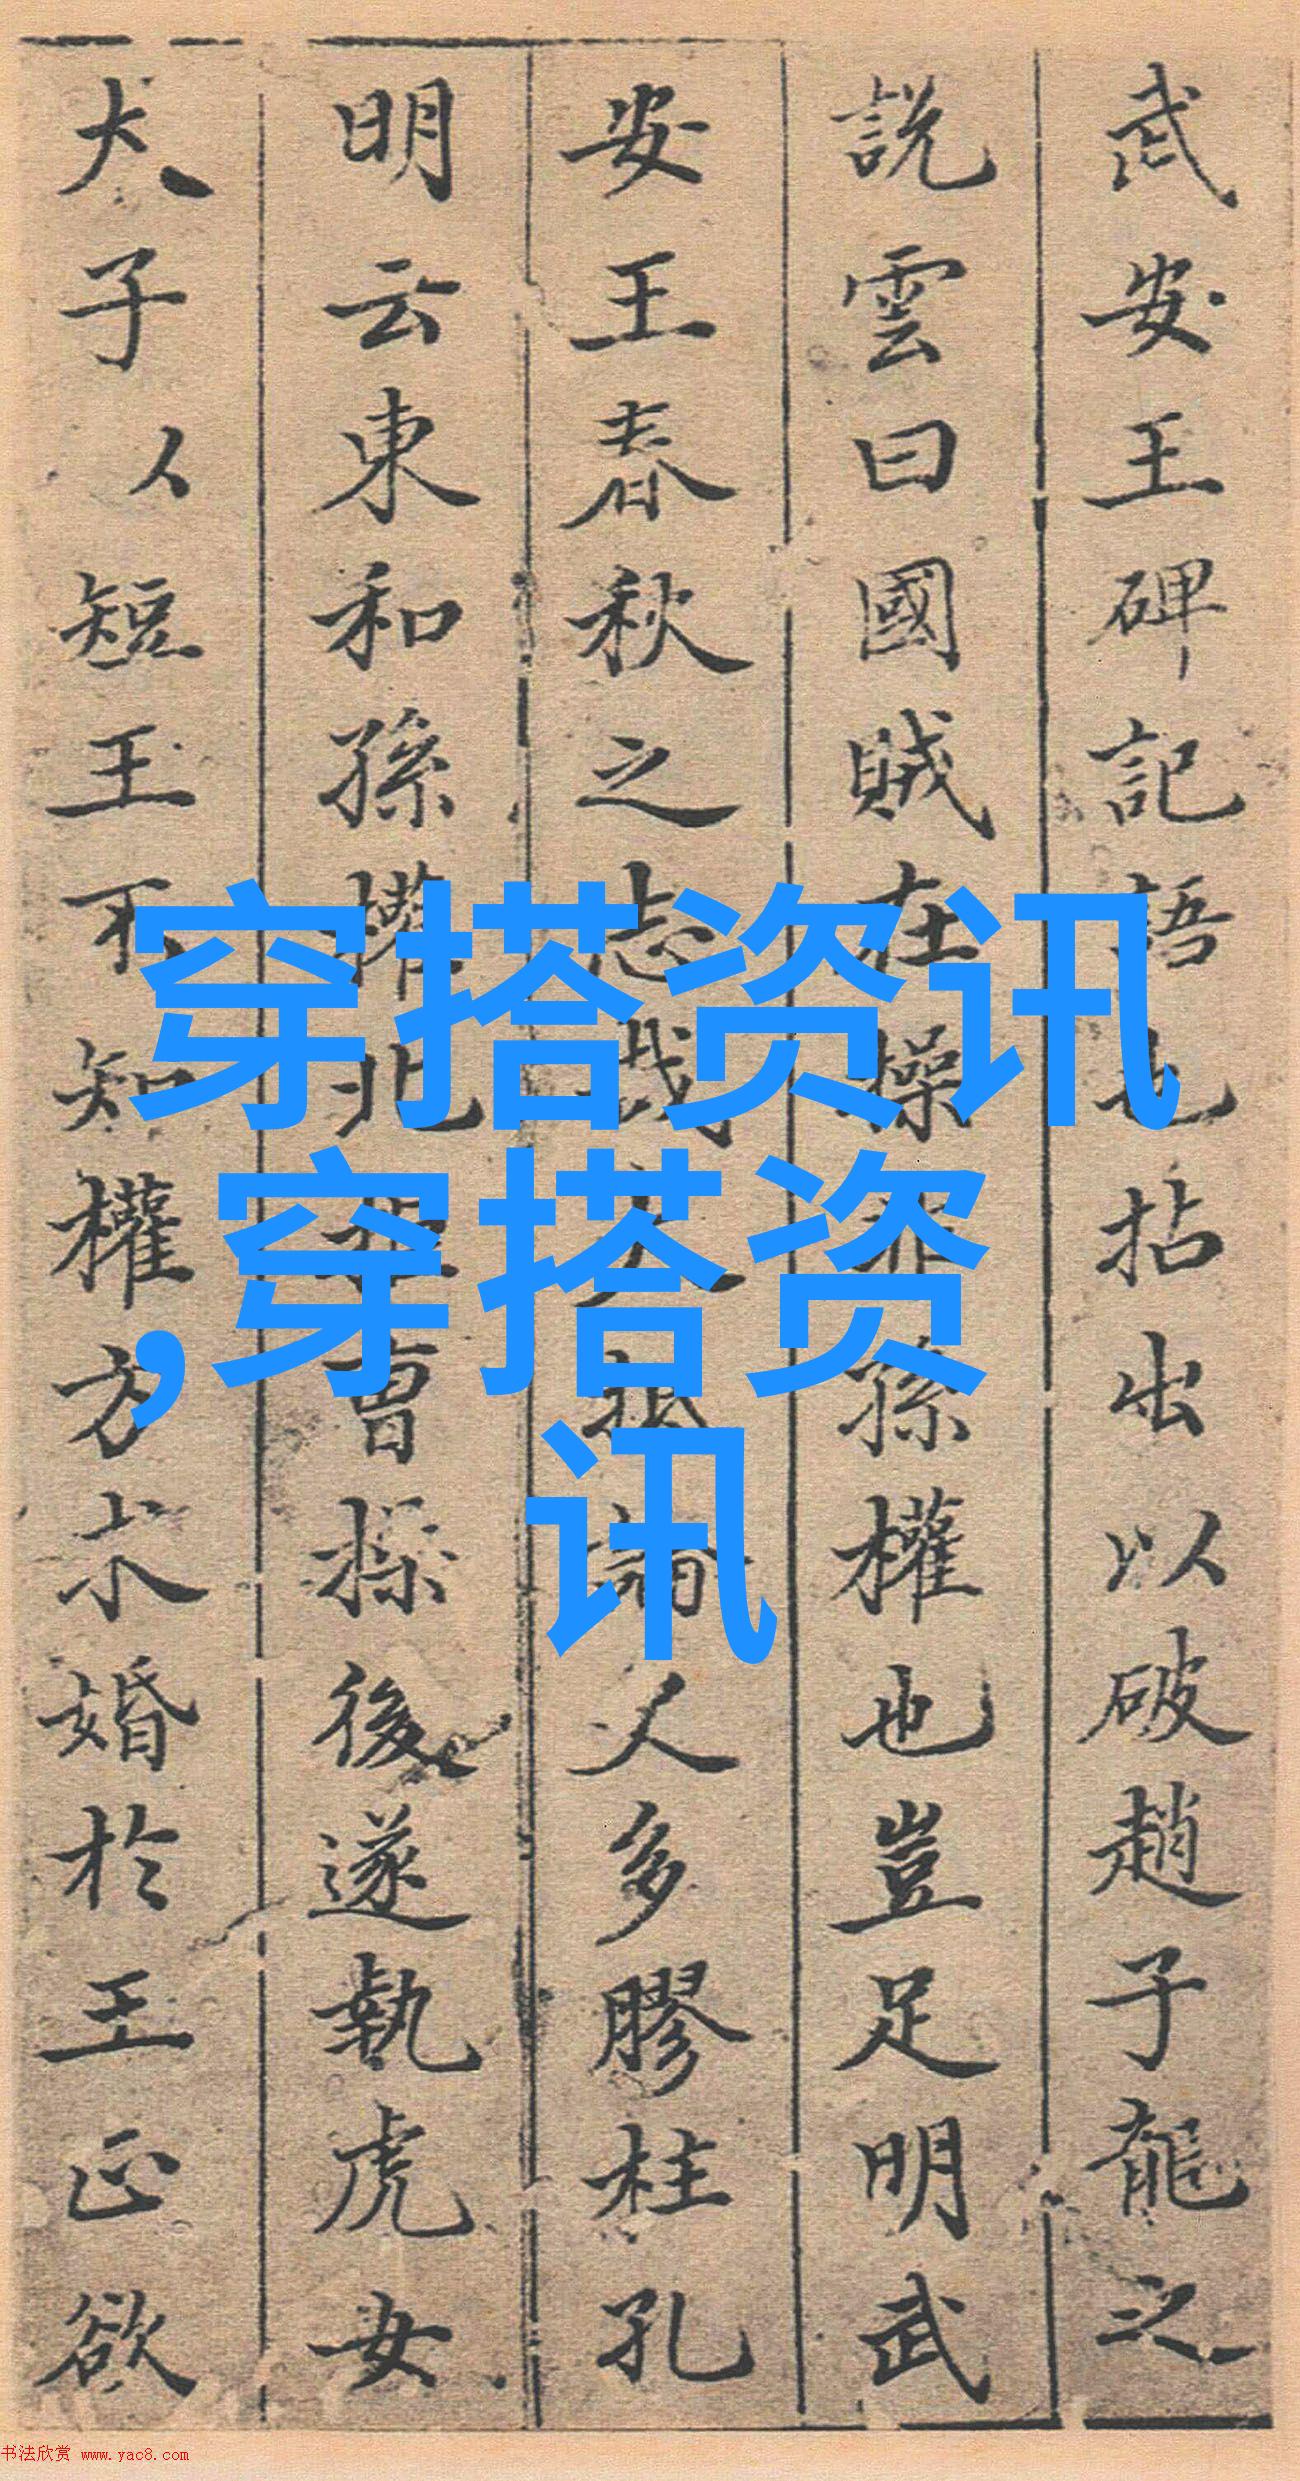 武安王碑記語也拈出以破趙子龍之
說雲曰國賊在操非孫權也豈足明武
安王春秋之志哉人多膠柱孔
明云東和孫權北拒曹操後遂執虎女
犬子以短王不知權方求婚於王正欲
穿搭资讯
,穿搭资
讯
书法欣赏 www.yac8.com